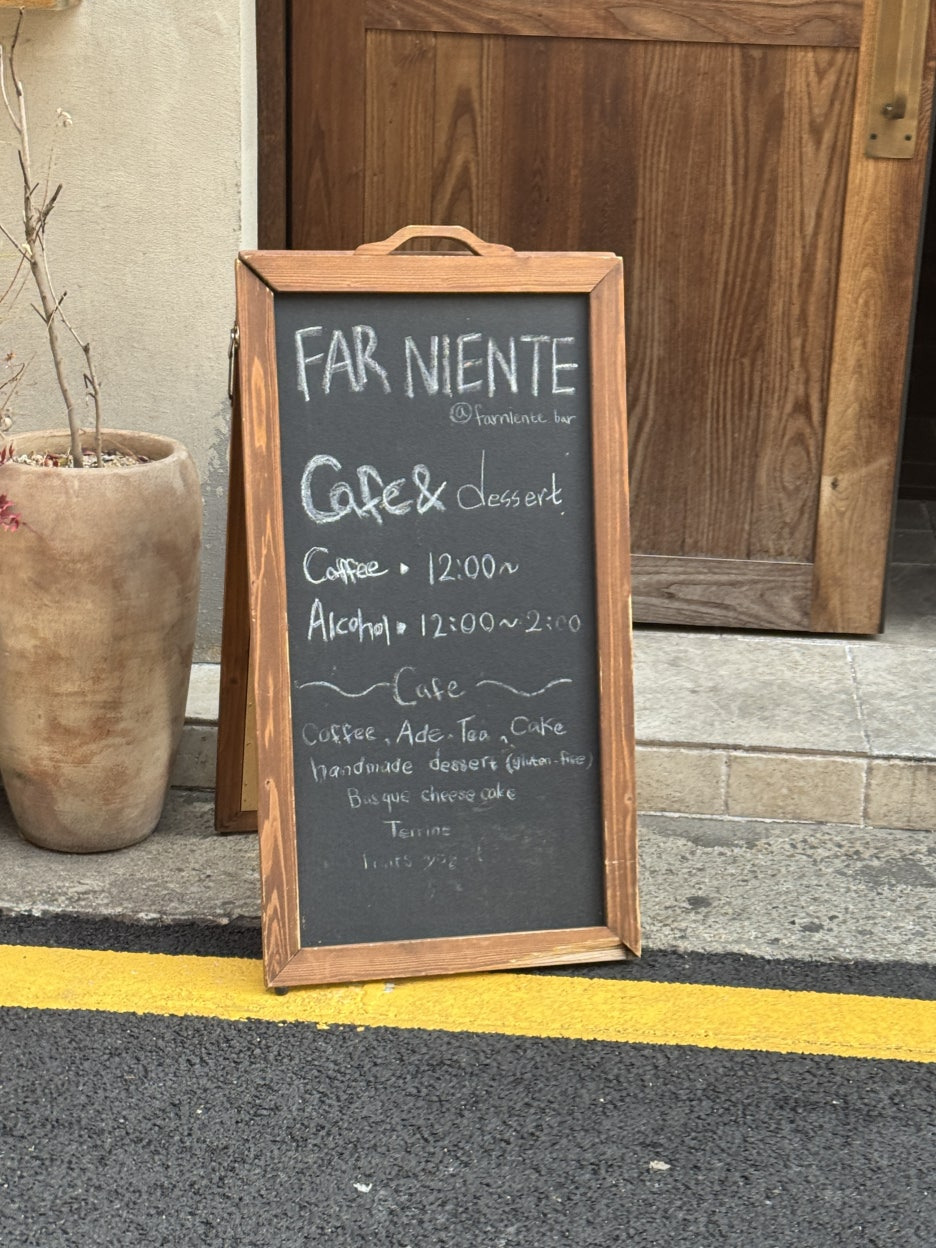 FAR NIENTE
@farniente.bar
Cafe & dessert
Coffee • 12:00~
Alcohol • 12:00~2:00
Cafe
Coffee, Ade. Tea, Cake
handmade dessert (gluten-free)
Basque cheese cake
Terrine